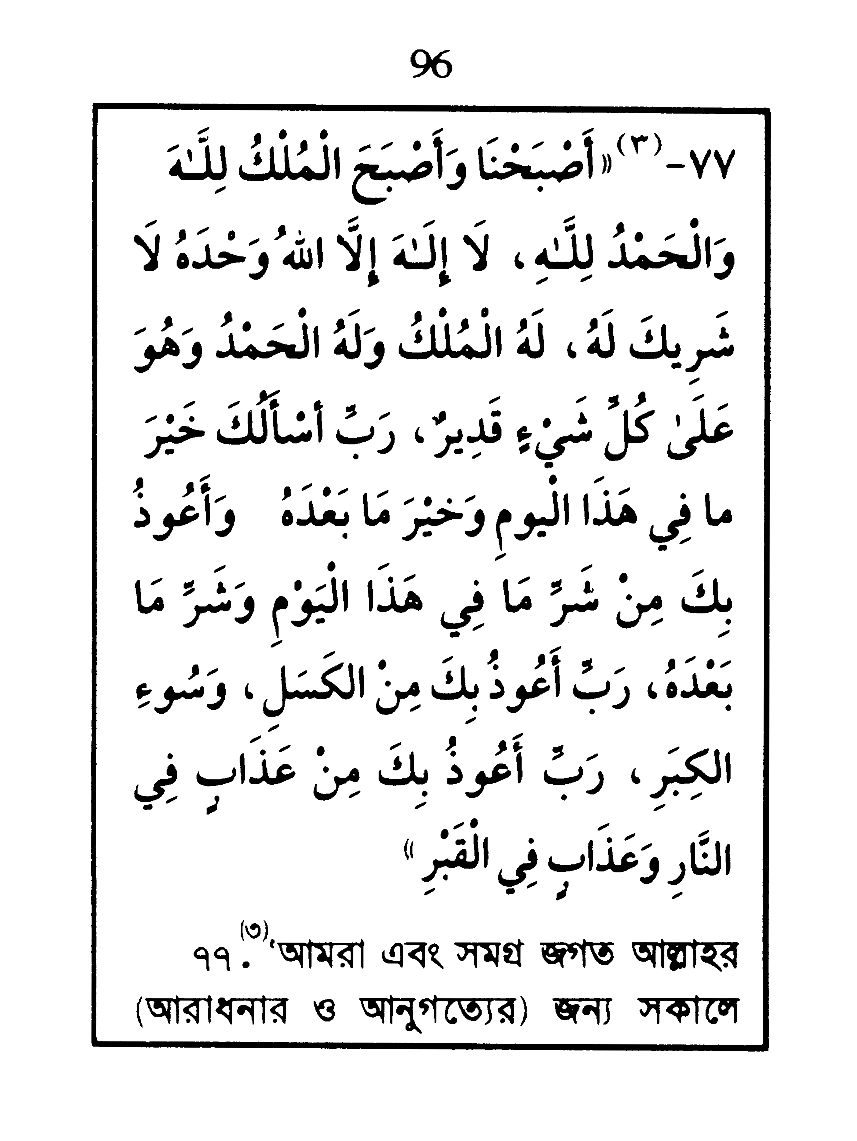 96
٧٧-(٣) «أَصْبَحْنَا وَأَصْبَحَ الْمُلْكُ لِلَّـٰهَ
وَالْحَمْدُ لِلَّـٰهِ، لَا إِلَـٰهَ إِلَّا اللهُ وَحْدَهُ لَا
شَرِيكَ لَهُ، لَهُ الْمُلْكُ وَلَهُ الْحَمْدُ وَهُوَ
عَلَىٰ كُلِّ شَيْءٍ قَدِيرٌ، رَبِّ أسْأَلُكَ خَيْرَ
ما فِي هَذَا الْيومِ وَخيْرَ مَا بَعْدَهُ وَأَعُوذُ
بِكَ مِنْ شَرِّ مَا فِي هَذَا الْيَوْمِ وَشَرِّ مَا
بَعْدَهُ، رَبِّ أَعُوذُ بِكَ مِنْ الكَسَلِ، وَسُوءِ
الكِبَرِ، رَبِّ أَعُوذُ بِكَ مِنْ عَذَابٍ فِي
النَّارِ وَعَذَابٍ فِي الْقَبْرِ»
৭৭.(৩)‘আমরা এবং সমগ্র জগত আল্লাহর
(আরাধনার ও আনুগত্যের) জন্য সকালে